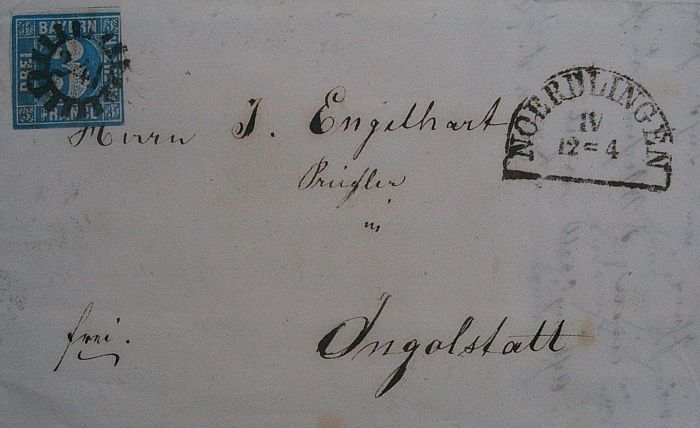 BAYERN
DREI
3
FRANCO
NOERDLINGEN
IV
12=4
Herrn J. Engelhart
in
frei.
Ingolstatt